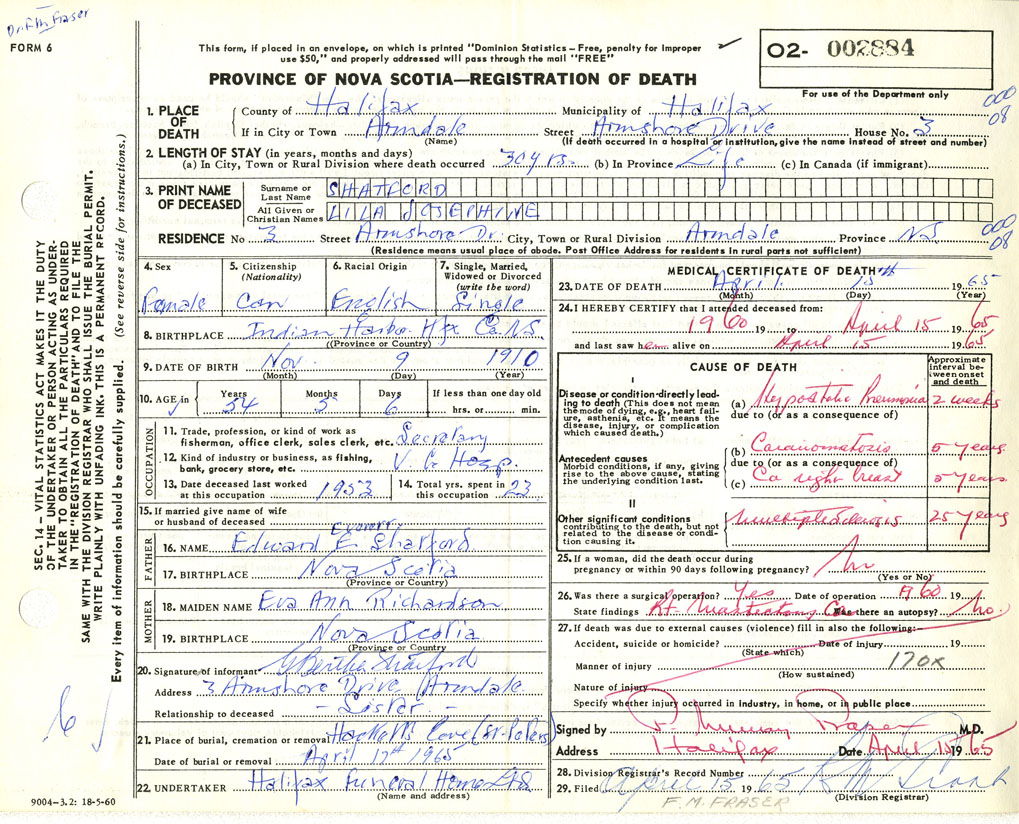 Dr. F.M. Fraser
FORM 6
This form, if placed in an envelope, on which is printed "Dominion Statistics – Free, penalty for improper
use $50," and properly addressed will pass through the mail "FREE"
PROVINCE OF NOVA SCOTIA—REGISTRATION OF DEATH
O2- 002884
For use of the Department only
000
08
SEC. 14 – VITAL STATISTICS ACT MAKES IT THE DUTY
OF THE UNDERTAKER OR PERSON ACTING AS UNDER-
TAKER TO OBTAIN ALL THE PARTICULARS REQUIRED
IN THE "REGISTRATION OF DEATH" AND TO FILE THE
SAME WITH THE DIVISION REGISTRAR WHO SHALL ISSUE THE BURIAL PERMIT.
WRITE PLAINLY WITH UNFADING INK. THIS IS A PERMANENT RECORD.
Every item of information should be carefully supplied. (See reverse side for instructions.)
1. PLACE OF DEATH
County of Halifax Municipality of Halifax
If in City or Town Armdale Street Armshore Drive House No. 3
(Name) (If death occurred in a hospital or institution, give the name instead of street and number)
2. LENGTH OF STAY (in years, months and days)
(a) In City, Town or Rural Division where death occurred 30 yrs. (b) In Province Life (c) In Canada (if immigrant)
3. PRINT NAME OF DECEASED
Surname or Last Name SHATFORD
All Given or Christian Names LILA JOSEPHINE
RESIDENCE No 3 Street Armshore Dr. City, Town or Rural Division Armdale Province N.S
(Residence means usual place of abode. Post Office Address for residents in rural parts not sufficient)
000
08
4. Sex Female
5. Citizenship (Nationality) Can
6. Racial Origin English
7. Single, Married, Widowed or Divorced (write the word) Single
8. BIRTHPLACE Indian Harbor Hfx Co. N.S.
(Province or Country)
9. DATE OF BIRTH Nov. 9 1910
(Month) (Day) (Year)
10. AGE in Years 54 Months 5 Days 6 If less than one day old hrs. or min.
OCCUPATION
11. Trade, profession, or kind of work as
fisherman, office clerk, sales clerk, etc. Secretary
12. Kind of industry or business, as fishing,
bank, grocery store, etc. V. G. Hosp.
13. Date deceased last worked at this occupation 1953
14. Total yrs. spent in this occupation 23
15. If married give name of wife
or husband of deceased
FATHER
16. NAME Edward E Shatford
17. BIRTHPLACE Nova Scotia
(Province or Country)
MOTHER
18. MAIDEN NAME Eva Ann Richardson
19. BIRTHPLACE Nova Scotia
(Province or Country)
20. Signature of informant G Bertha Shatford
Address 3 Armshore Drive Armdale
Relationship to deceased - Sister -
21. Place of burial, cremation or removal Hacketts Cove (St. Peters)
Date of burial or removal April 17th 1965
22. UNDERTAKER Halifax Funeral Home Ltd
(Name and address)
9004–3.2: 18-5-60
MEDICAL CERTIFICATE OF DEATH
23. DATE OF DEATH April 15th 1965
(Month) (Day) (Year)
24. I HEREBY CERTIFY that I attended deceased from
1960 19 to April 15 1965
and last saw her alive on April 15 1965
CAUSE OF DEATH
Approximate interval between onset and death
I
Disease or condition directly leading to death (This does not mean
the mode of dying, e.g., heart failure, asthenia, etc. It means the
disease, injury, or complication which caused death.)
(a) Hypostatic Pneumonia 2 weeks
due to (or as a consequence of)
Antecedent causes
Morbid conditions, if any, giving
rise to the above cause, stating
the underlying condition last.
(b) Carcinomatosis 5 years
due to (or as a consequence of)
(c) Ca right breast 5 years
II
Other significant conditions
contributing to the death, but not
related to the disease or condition causing it.
Multiple Sclerosis 25 years
25. If a woman, did the death occur during
pregnancy or within 90 days following pregnancy? No
(Yes or No)
26. Was there a surgical operation? Yes Date of operation 60 19
State findings Rt Mastectomy Ca Was there an autopsy? No.
27. If death was due to external causes (violence) fill in also the following:—
Accident, suicide or homicide? Date of injury 19
(State which)
Manner of injury 170X
(How sustained)
Nature of injury
Specify whether injury occurred in industry, in home, or in public place
Signed by Murray M.D.
Address Halifax Date April 15 1965
28. Division Registrar's Record Number
29. Filed April 15 1965
F. M. FRASER (Division Registrar)